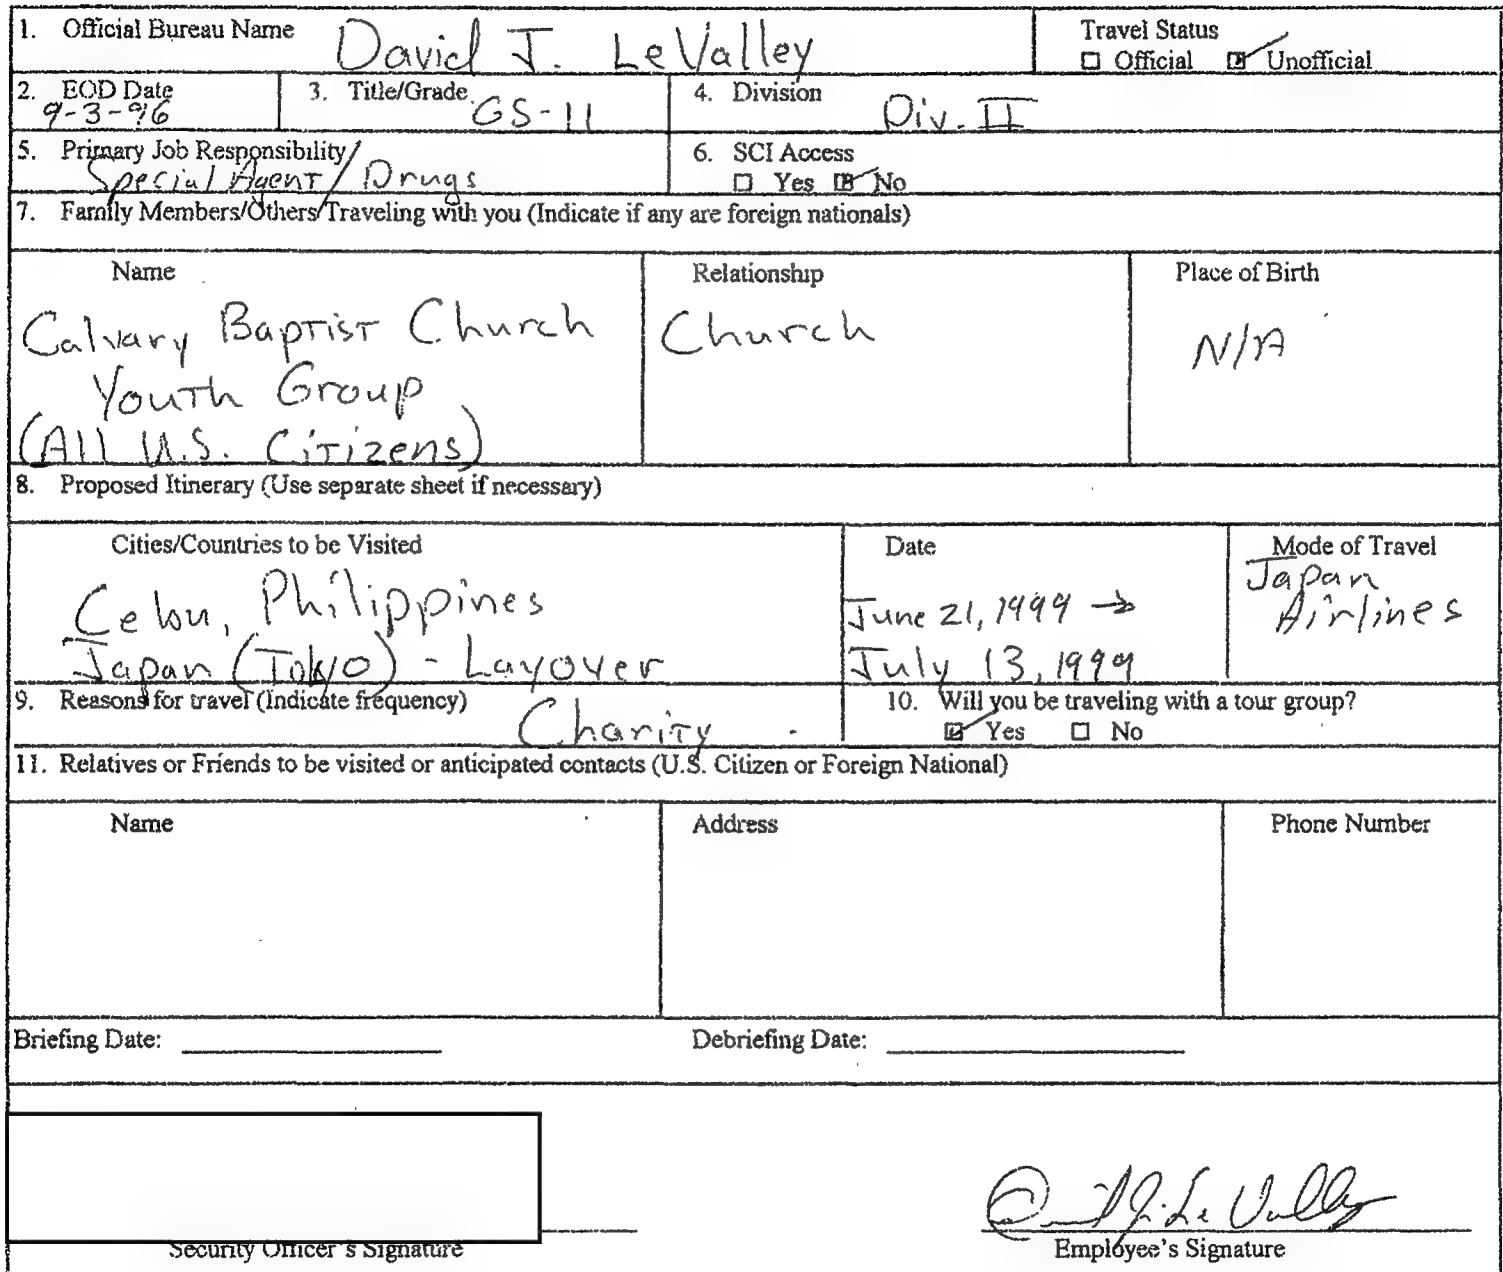 1. Official Bureau Name David J. LeValley
Travel Status
☐ Official ☑ Unofficial
2. EOD Date 9-3-96
3. Title/Grade GS-11
4. Division Div. II
5. Primary Job Responsibility Special Agent/Drugs
6. SCI Access
☐ Yes ☑ No
7. Family Members/Others/Traveling with you (Indicate if any are foreign nationals)
Name Relationship Place of Birth
Calvary Baptist Church Church N/A
Youth Group
(All U.S. Citizens)
8. Proposed Itinerary (Use separate sheet if necessary)
Cities/Countries to be Visited Date Mode of Travel
Cebu, Philippines June 21, 1999 → Japan
Japan (Tokyo) - Layover July 13, 1999 Airlines
9. Reasons for travel (Indicate frequency) Charity
10. Will you be traveling with a tour group?
☑ Yes ☐ No
11. Relatives or Friends to be visited or anticipated contacts (U.S. Citizen or Foreign National)
Name Address Phone Number
Briefing Date: Debriefing Date:
David J. LeValley
Security Officer's Signature Employee's Signature